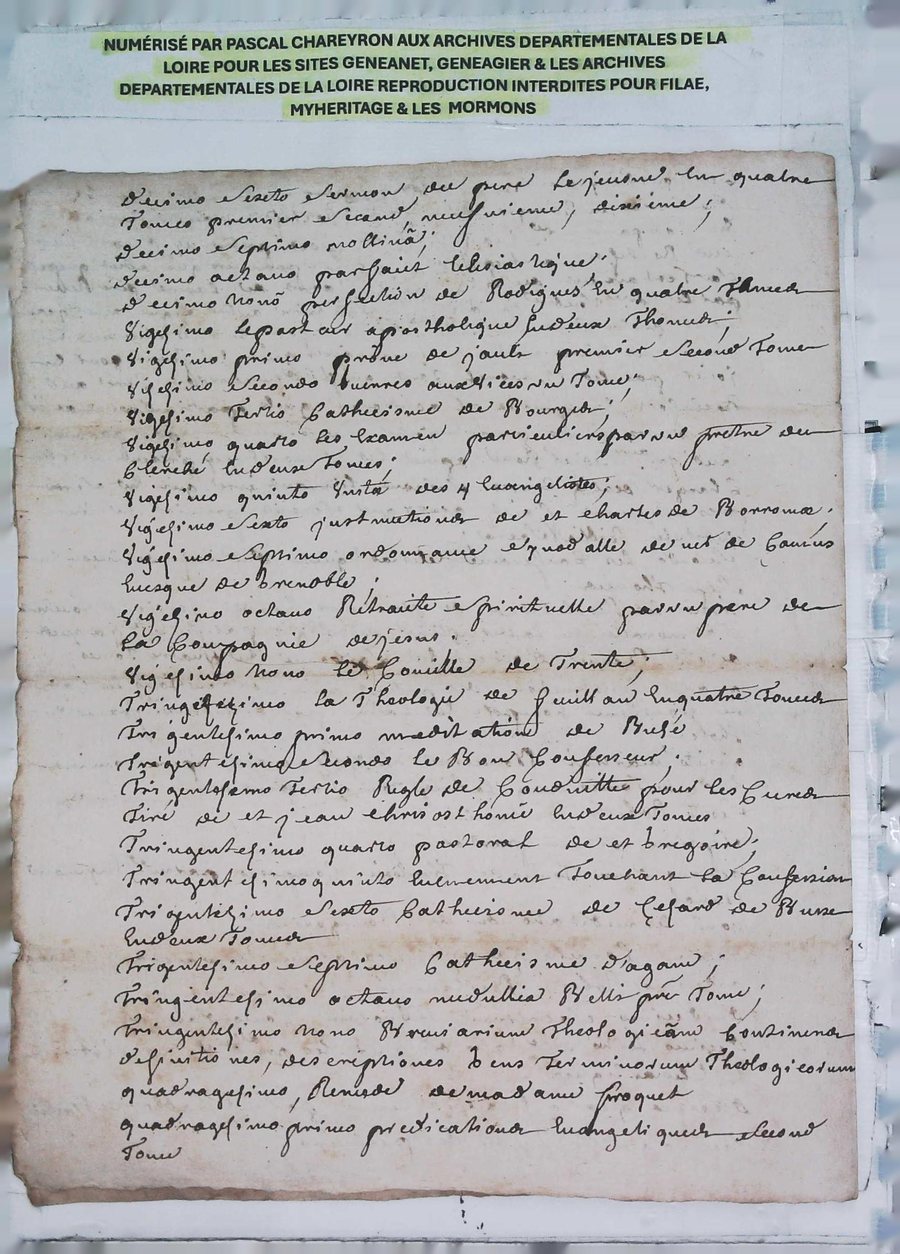 NUMÉRISÉ PAR PASCAL CHAREYRON AUX ARCHIVES DEPARTEMENTALES DE LA
LOIRE POUR LES SITES GENEANET, GENEAGIER & LES ARCHIVES
DEPARTEMENTALES DE LA LOIRE REPRODUCTION INTERDITES POUR FILAE,
MYHERITAGE & LES MORMONS
decimo sexto sermon du pere Le jeune En quatre
Tomes premier second, neufvieme, dixieme;
decimo septimo mollinã;
decimo octavo parfaict Eclesiastique.
decimo nonõ perfection de Rodigues En quatre Thomes
Vigesimo Le pasteur apostholique En deux Thomes;
Vigesimo primo prône de premier second Tomes
secondo aux vices un Tome;
Vigesimo Tertio Cathecisme de Bourges;
Vigesimo quarto Les Examen particuliers par un prêtre du
Clerché En deux Tomes;
Vigesimo quinto des 4 Euangelistes;
Vigesimo sexto justructiones de st charles de Borromæ.
Vigesimo septimo ordonnance de de Camus
Euesque de Grenoble;
Vigesimo octavo Retraitte spirituelle par un pere de
La Compagnie de jesus.
Vigesimo Nono Le Concille de Trente;
La Theologie de En quatre Tomes
Trigentesimo primo meditation de Busé
Trigentesimo secondo Le Bon Confesseur;
Trigentesemo Tertio Regle de Conduitte pour Les Cures
Tiré de st jean Chrisosthome En deux Tomes
Tringentesimo quarto pastoral de st Gregoire;
Tringentesimo quinto Touchant La Confession
Trigentesimo sexto Cathecisme de Cesard de Busse
En deux Tomes
Trigentesimo septimo Cathecisme d'agane;
Tringientesimo octavo medullia Tome;
Tringentesimo nono Breuiarium Theologicũm Continens
definitiones, descriptiones Terminorum Theologicorum
quadragesimo, Remede de madame froquet
quadragesimo primo predicationes Euangeliques second
Tome